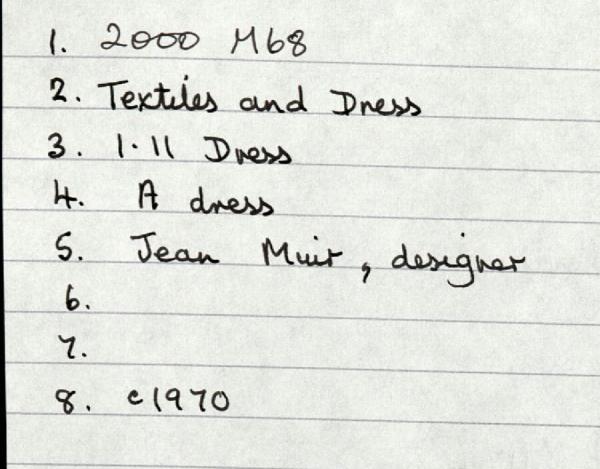 1. 2000 M68
2. Textiles and Dress
3. 1.11 Dress
4. A dress
5. Jean Muir, designer
6.
7.
8. c1970